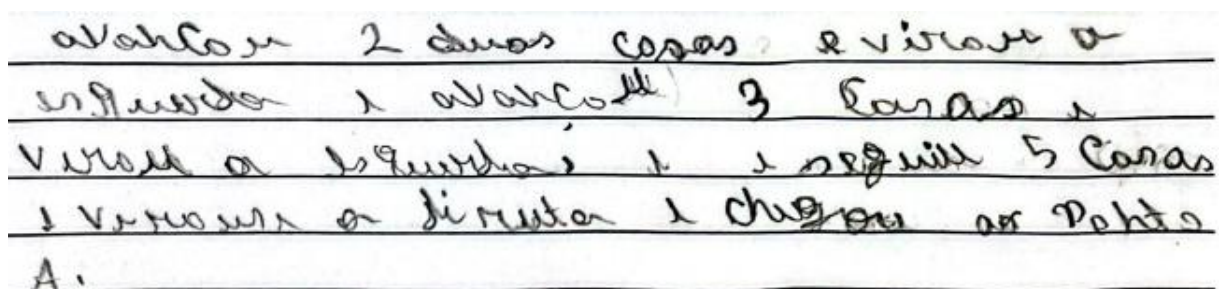 avancou 2 duas casas e virou a
esquerda e avancou 3 casas e
virou a esquerda e e seguiu 5 casas
e virouse a direita e chegou ao Ponto
A.